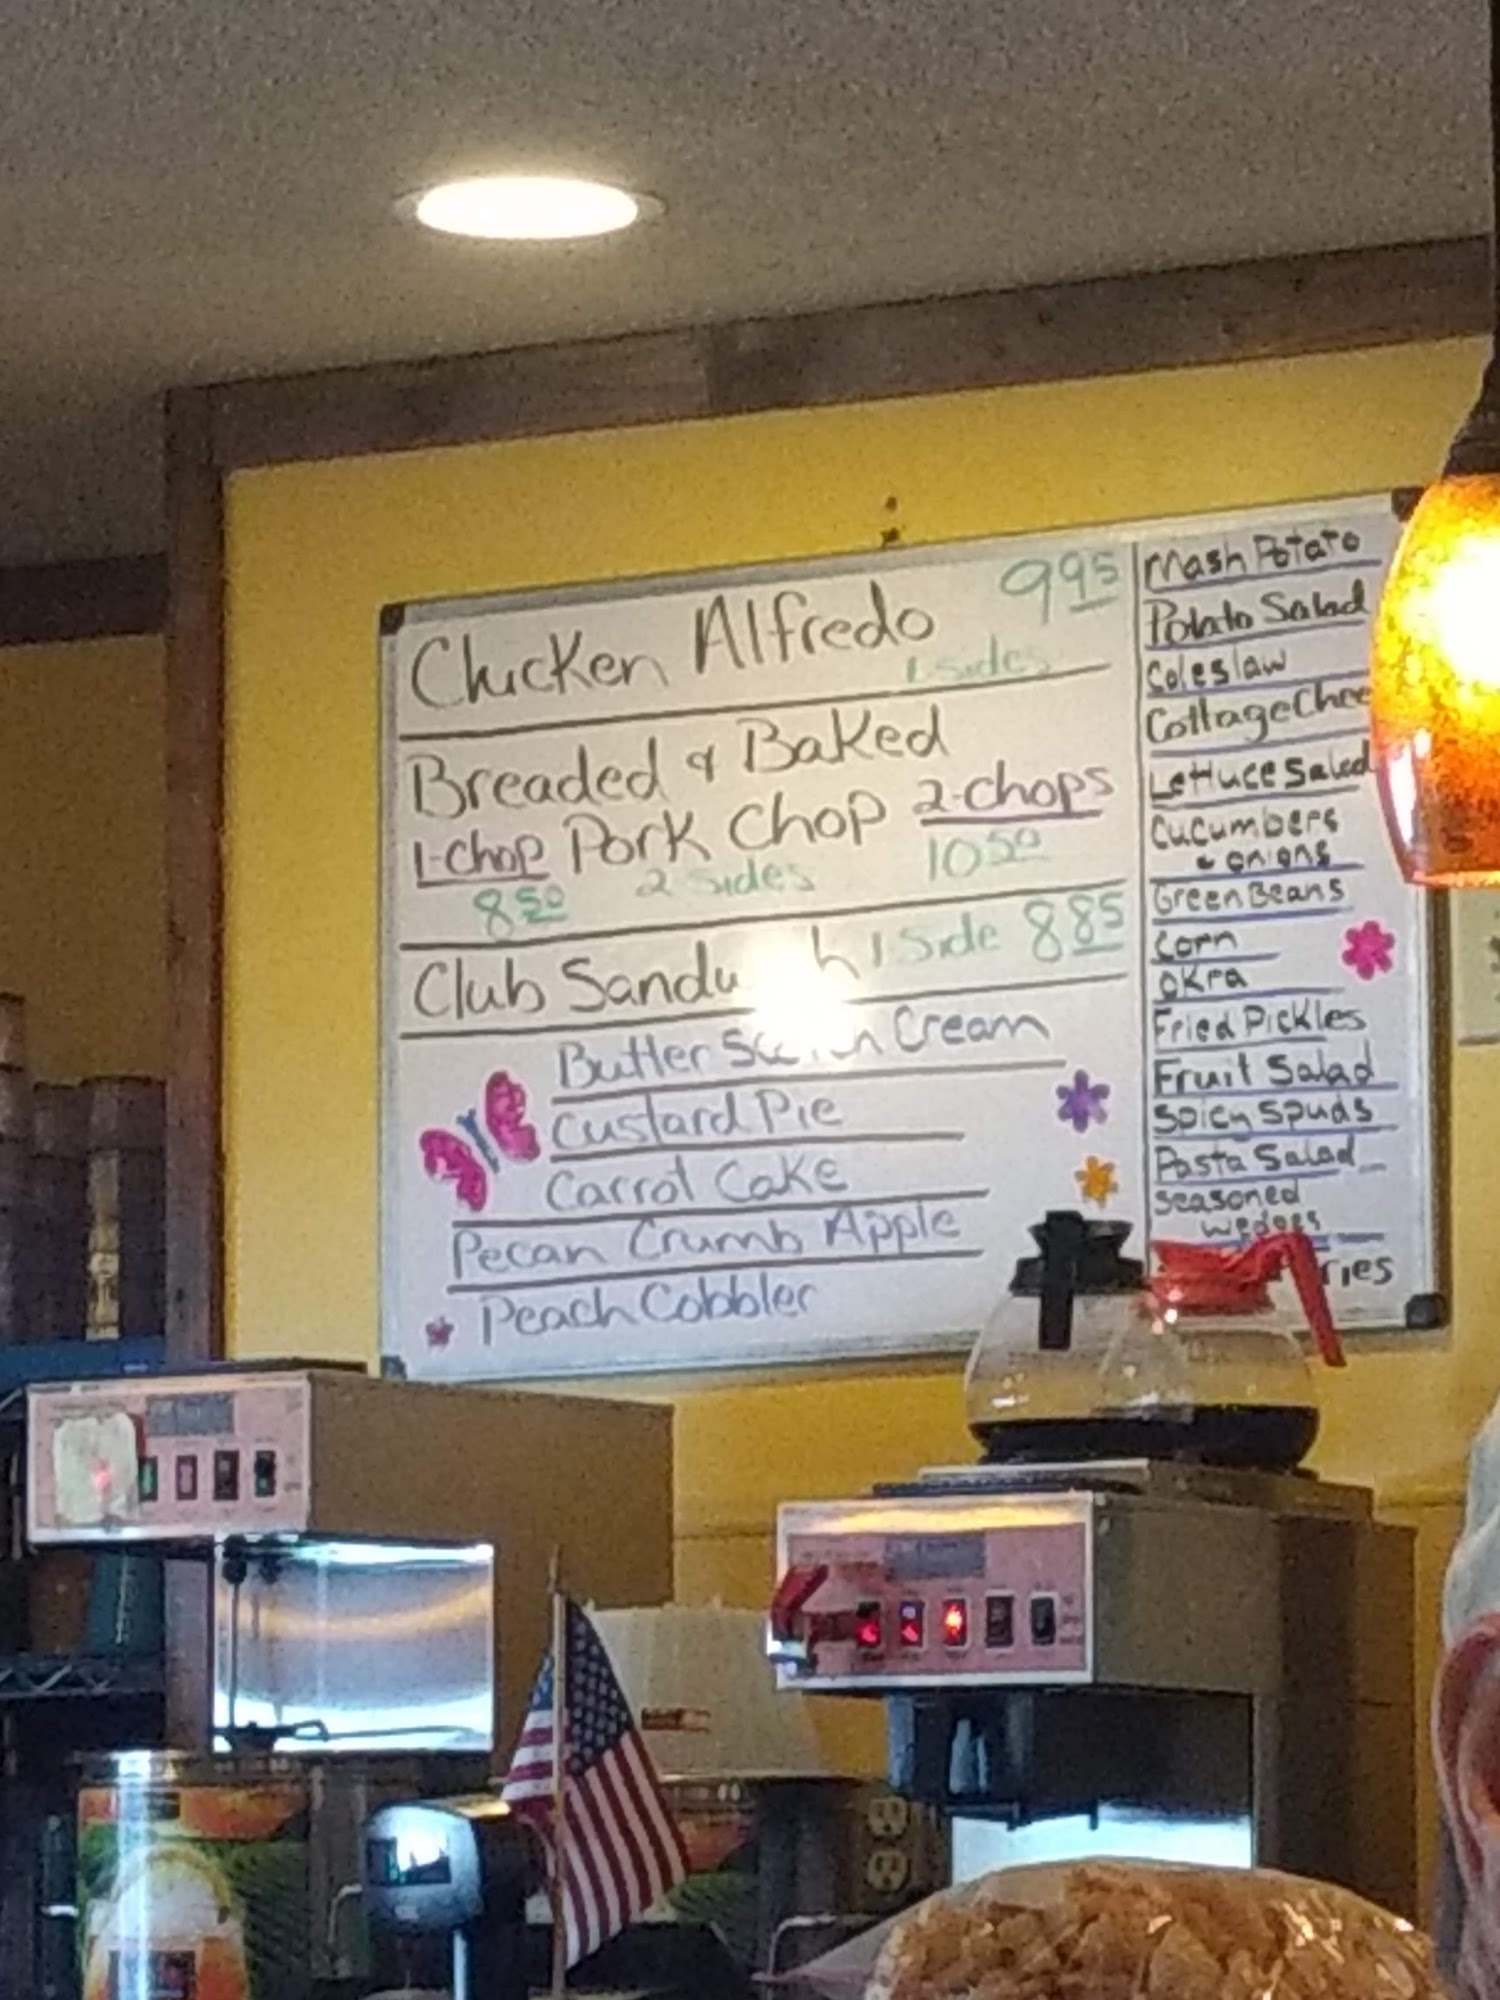 Chicken Alfredo 9 95
1 sides
Breaded & Baked
1-Chop Pork Chop 2-Chops
8 50 2 sides 10 50
Club 1 Side 8 85
Butter Cream
Custard Pie
Carrot Cake
Pecan Crumb Apple
Peach Cobbler
Mash Potato
Potato Salad
Coleslaw
Cottage Chee
Lettuce Salad
Cucumbers
& onions
Green Beans
Corn
Okra
Fried Pickles
Fruit Salad
Spicy Spuds
Pasta Salad
Seasoned
wedges
ries